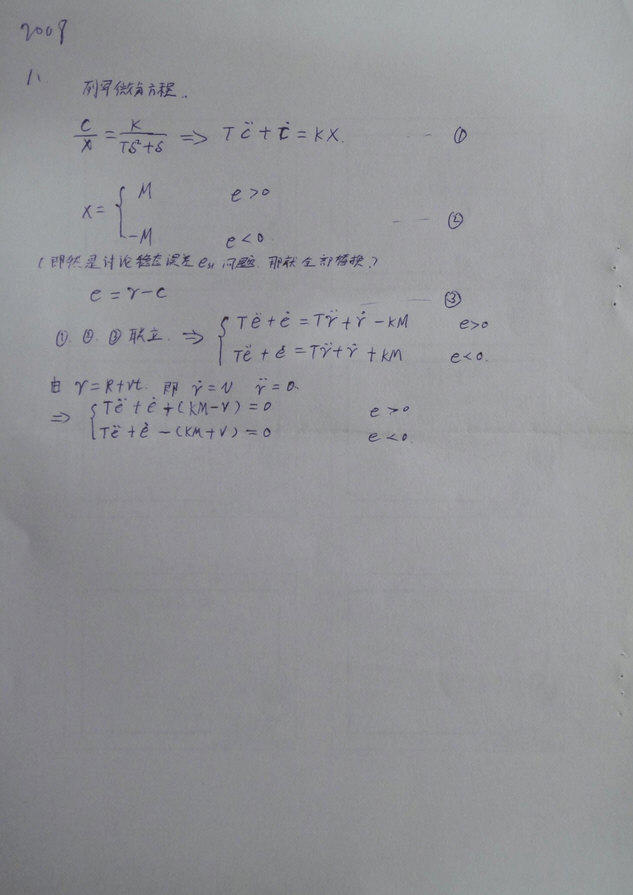 2008
1、
列写微分方程.
C/X = K/(TS²+S) ⇒ TC̈ + Ċ = KX. —— ①
X = { M e>0
-M e<0. —— ②
(即然是讨论稳态误差 ess 问题. 那就全部替换.)
e = r-c —— ③
①. ②. ③ 联立. ⇒ { Të + ė = Tr̈ + ṙ - KM e>0
Të + ė = Tr̈ + ṙ + KM e<0.
由 r = R+vt. 即 ṙ = v r̈ = 0.
⇒ { Të + ė + (KM-v) = 0 e>0
Të + ė - (KM+v) = 0 e<0.